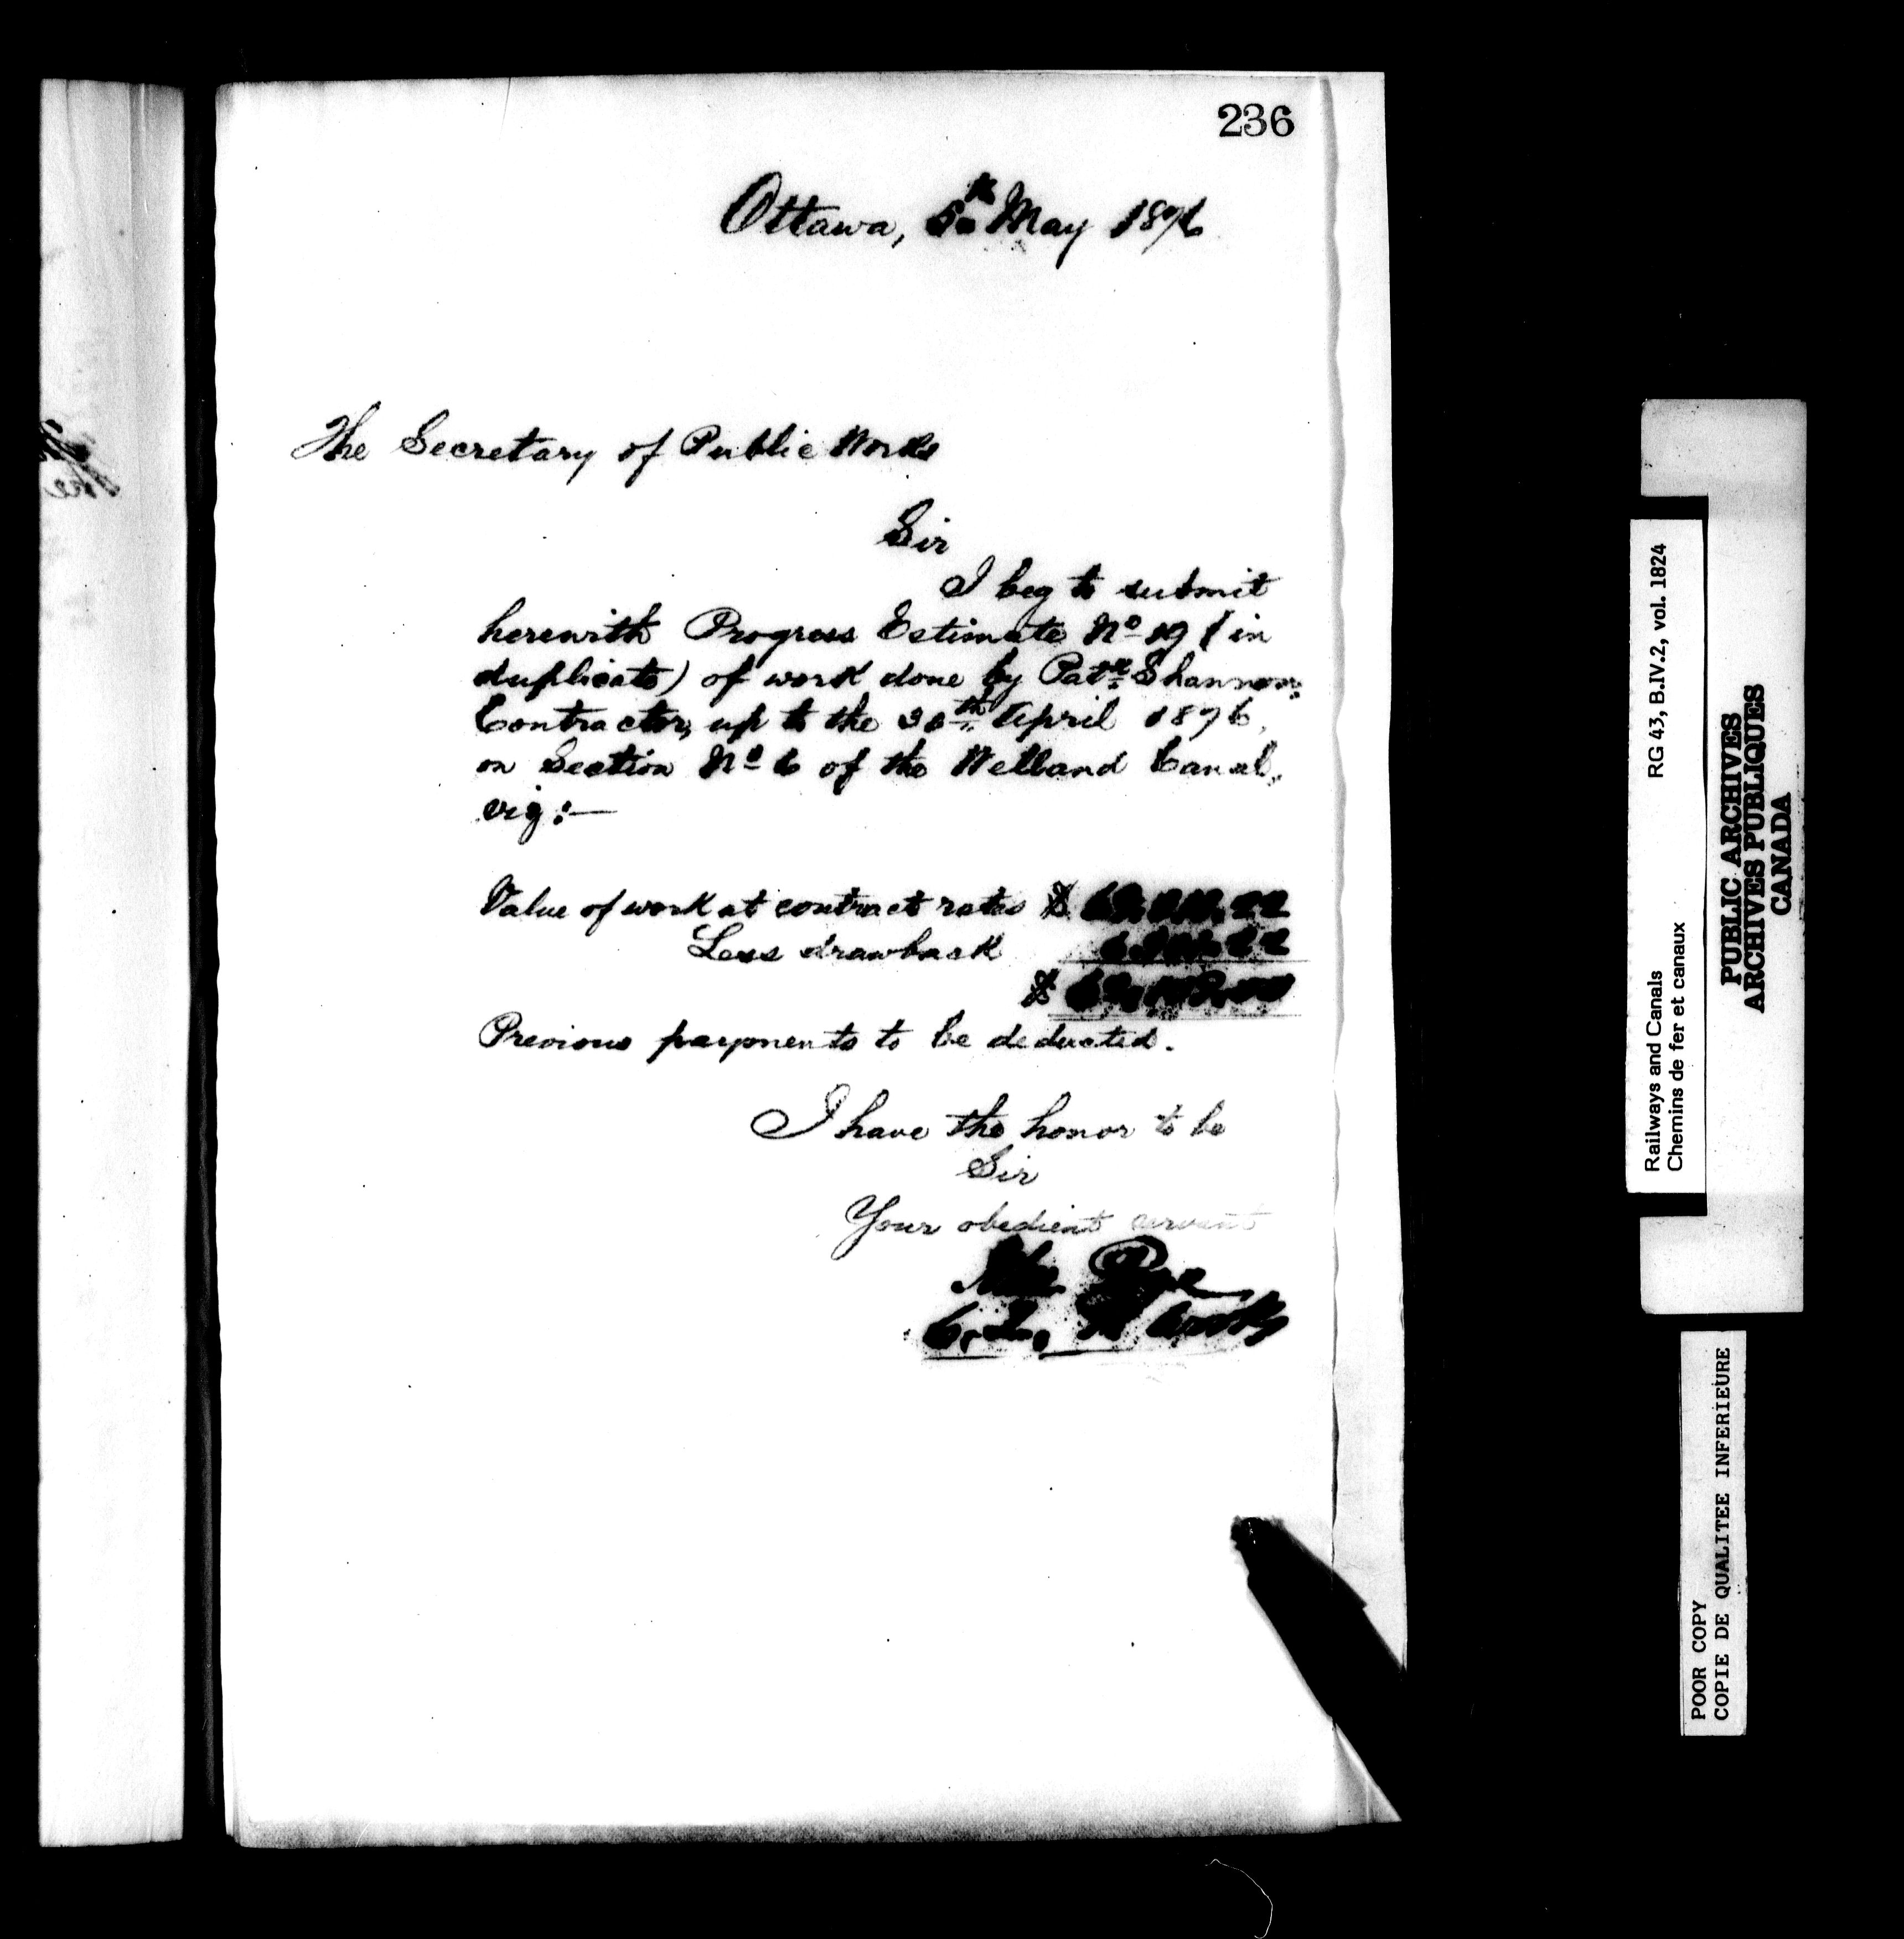 236
Ottawa, 5th May 1876
The Secretary of Public Works
Sir
I beg to submit
herewith Progress Estimate No 19 (in
duplicate) of work done by Patk Shannon
Contractor, up to the 30th April 1876,
on Section No 6 of the Welland Canal,
viz:—
Value of work at contract rates $
Less drawback
$
Previous payments to be deducted.
I have the honor to be
Sir
Your obedient servant
John Page
C. E. P Works
Railways and Canals RG 43, B.IV.2, vol. 1824
Chemins de fer et canaux
PUBLIC ARCHIVES
ARCHIVES PUBLIQUES
CANADA
POOR COPY
COPIE DE QUALITEE INFERIEURE